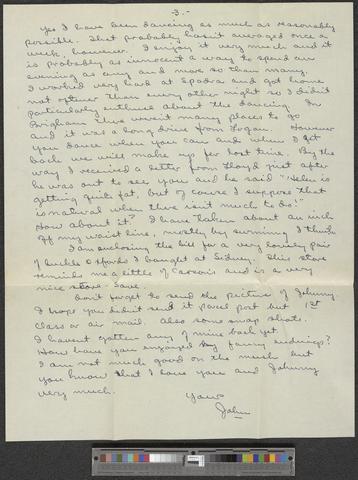 -3-
Yes I have been dancing as much as reasonably
possible. That probably hasn't averaged once a
week, however. I enjoy it very much and it
is probably as innocent a way to spend an
evening as any and more so than many.
I worked very hard at Spadra and got home
not oftener than every other night so I didn't
particularly enthuse about the dancing. In
Brigham there weren't many places to go
and it was a long drive from Logan. However
you dance when you can and when I get
back we will make up for lost time. By the
way I received a letter from Lloyd just after
he was out to see you and he said "Helen is
getting quite fat, but of course I suppose that
is natural when there isn't much to do."
How about it? I have taken about an inch
off my waist line, mostly by swimming I think.
I am enclosing the bill for a very lovely pair
of buckle oxfords I bought at Sidney. This store
reminds me a little of Carson's and is a very
nice store. Save.
Don't forget to send the picture of Johnny.
I hope you didn't send it parcel post but 1st
class or air mail. Also some snap shots.
I haven't gotten any of mine back yet.
How have you enjoyed my funny endings?
I am not much good on the mush but
you know that I love you and Johnny
very much.
Yours
John